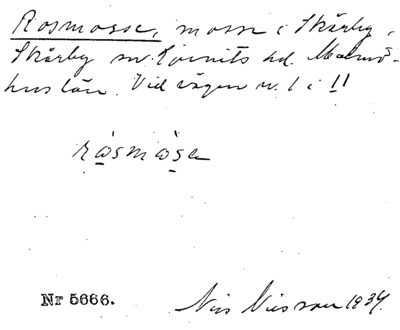 Rosmosse, mosse i Skårby,
Skårby sn. Ljunits hd. Malmö-
hus län. Vid vägen n. 1 i II
rosmosa
Nr 5666.
Nils Nilsson 1934.